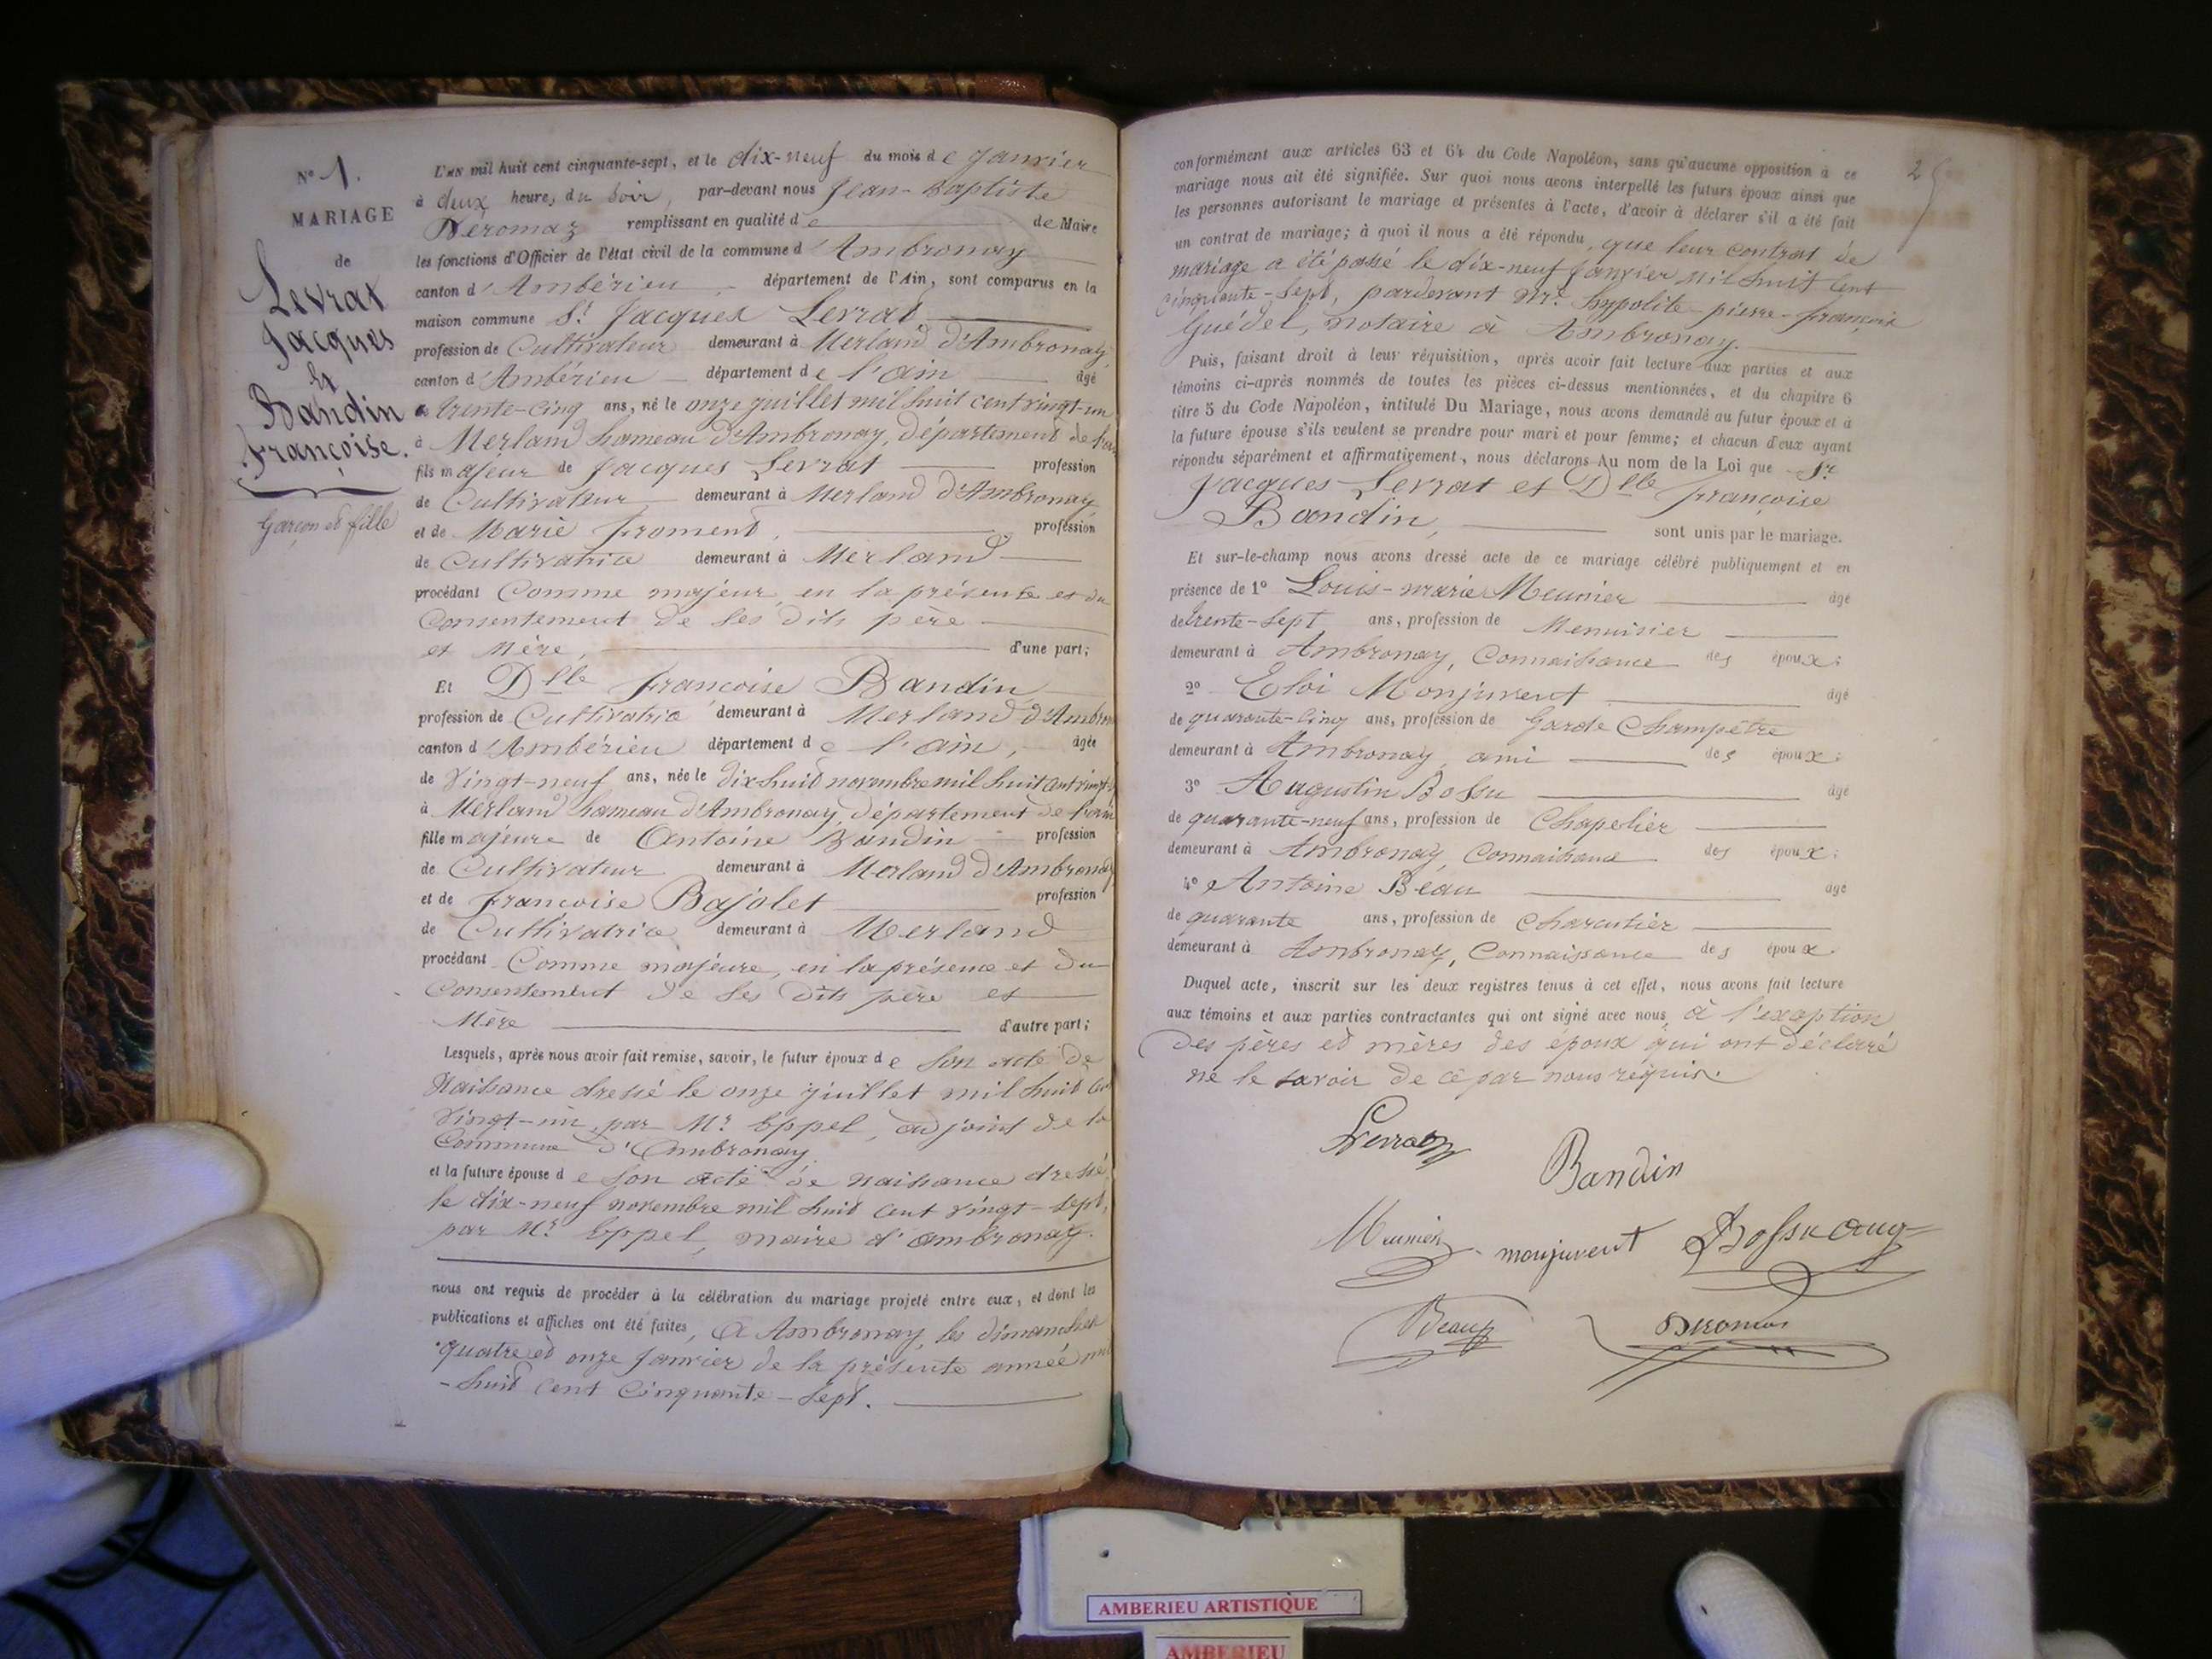 N° 1.
MARIAGE
de
Levrat
Jacques
et
Bandin
Françoise.
Garçon et fille
L'AN mil huit cent cinquante-sept, et le dix-neuf du mois de Janvier
à deux heures du Soir, par-devant nous Jean-Baptiste
Déromaz remplissant en qualité de de Maire
les fonctions d'Officier de l'état civil de la commune d'Ambronay
canton d'Ambérieu, département de l'Ain, sont comparus en la
maison commune Sr. Jacques Levrat
profession de Cultivateur demeurant à Merland d'Ambronay,
canton d'Ambérieu département de l'ain âgé
de trente-cinq ans, né le onze juillet mil huit cent vingt-un
à Merland hameau d'Ambronay, département de l'ain
fils majeur de Jacques Levrat profession
de Cultivateur demeurant à Merland d'Ambronay
et de Marie Froment, profession
de Cultivatrice demeurant à Merland
procédant Comme majeur, en la présente et du
Consentement de ses dits père
et Mère, d'une part;
Et Dlle Françoise Bandin
profession de Cultivatrice demeurant à Merland d'Ambron
canton d'Ambérieu département de l'ain, âgée
de vingt-neuf ans, née le dix-huit novembre mil huit cent vingt-
à Merland hameau d'Ambronay, département de l'ain
fille majeure de Antoine Bandin profession
de Cultivateur demeurant à Merland d'Ambronay
et de Françoise Bajolet profession
de Cultivatrice demeurant à Merland
procédant Comme majeure, en la présence et du
Consentement de ses dits père et
Mère d'autre part;
Lesquels, après nous avoir fait remise, savoir, le futur époux de son acte de
Naissance dressé le onze juillet mil huit cent
vingt-un, par Mr. Eppel, adjoint de la
Commune d'Ambronay.
et la future épouse de son acte de naissance dressé
le dix-neuf novembre mil huit cent vingt-sept,
par Mr. Eppel, maire d'ambronay.
nous ont requis de procéder à la célébration du mariage projeté entre eux, et dont les
publications et affiches ont été faites, à Ambronay, les dimanches
quatre et onze Janvier de la présente année mil
-huit cent Cinquante-sept.
25
conformément aux articles 63 et 64 du Code Napoléon, sans qu'aucune opposition à ce
mariage nous ait été signifiée. Sur quoi nous avons interpellé les futurs époux ainsi que
les personnes autorisant le mariage et présentes à l'acte, d'avoir à déclarer s'il a été fait
un contrat de mariage; à quoi il nous a été répondu, que leur contrat de
mariage a été passé le dix-neuf Janvier mil huit Cent
Cinquante-Sept, pardevant Mre. hypolite-pierre-françois
Guédel, notaire à Ambronay.
Puis, faisant droit à leur réquisition, après avoir fait lecture aux parties et aux
témoins ci-après nommés de toutes les pièces ci-dessus mentionnées, et du chapitre 6
titre 5 du Code Napoléon, intitulé Du Mariage, nous avons demandé au futur époux et à
la future épouse s'ils veulent se prendre pour mari et pour femme; et chacun d'eux ayant
répondu séparément et affirmativement, nous déclarons Au nom de la Loi que Sr.
Jacques Levrat et Dlle Françoise
Bandin, sont unis par le mariage.
Et sur-le-champ nous avons dressé acte de ce mariage célébré publiquement et en
présence de 1° Louis-marie Meunier âgé
de trente-sept ans, profession de Menuisier
demeurant à Ambronay, Connaissance des époux;
2° Eloi Monjuvent âgé
de quarante-cinq ans, profession de Garde Champêtre
demeurant à Ambronay, ami des époux;
3° Augustin Bossu âgé
de quarante-neuf ans, profession de Chapelier
demeurant à Ambronay, Connaissance des époux;
4° Antoine Beau âgé
de quarante ans, profession de Charcutier
demeurant à Ambronay, Connaissance des époux.
Duquel acte, inscrit sur les deux registres tenus à cet effet, nous avons fait lecture
aux témoins et aux parties contractantes qui ont signé avec nous, à l'exception
des pères et mères des époux qui ont déclaré
ne le savoir de ce par nous requis.
Levrat
Bandin
Meunier monjuvent Bossu aug
Beau Déromaz
AMBERIEU ARTISTIQUE
AMBERIEU